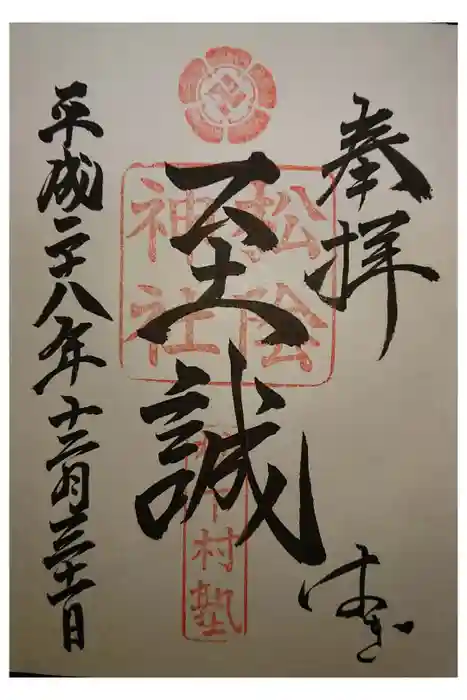 奉拝
はぎ
至誠
松陰
神社
松下村塾
平成二十八年十二月三十一日